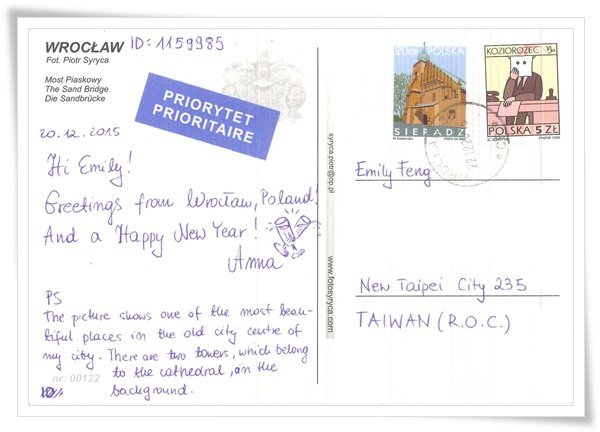 WROCŁAW ID: 1159985
Fot. Piotr Syryca
Most Piaskowy
The Sand Bridge
Die Sandbrücke
PRIORYTET
PRIORITAIRE
20.12.2015
Hi Emily!
Greetings from Wrocław, Poland!
And a Happy New Year!
Anna
PS
The picture shows one of the most beau-
tiful places in the old city centre of
my city. There are two towers, which belong
to the cathedral, on the
background.
nr: 00122
syryca.piotr@op.pl
www.fotosyryca.com
20 GR POLSKA
SIERADZ
KOZIOROŻEC
POLSKA 5 ZŁ
Emily Feng
New Taipei City 235
TAIWAN (R.O.C.)